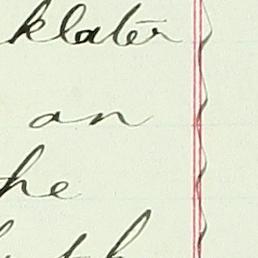 klater
an
he